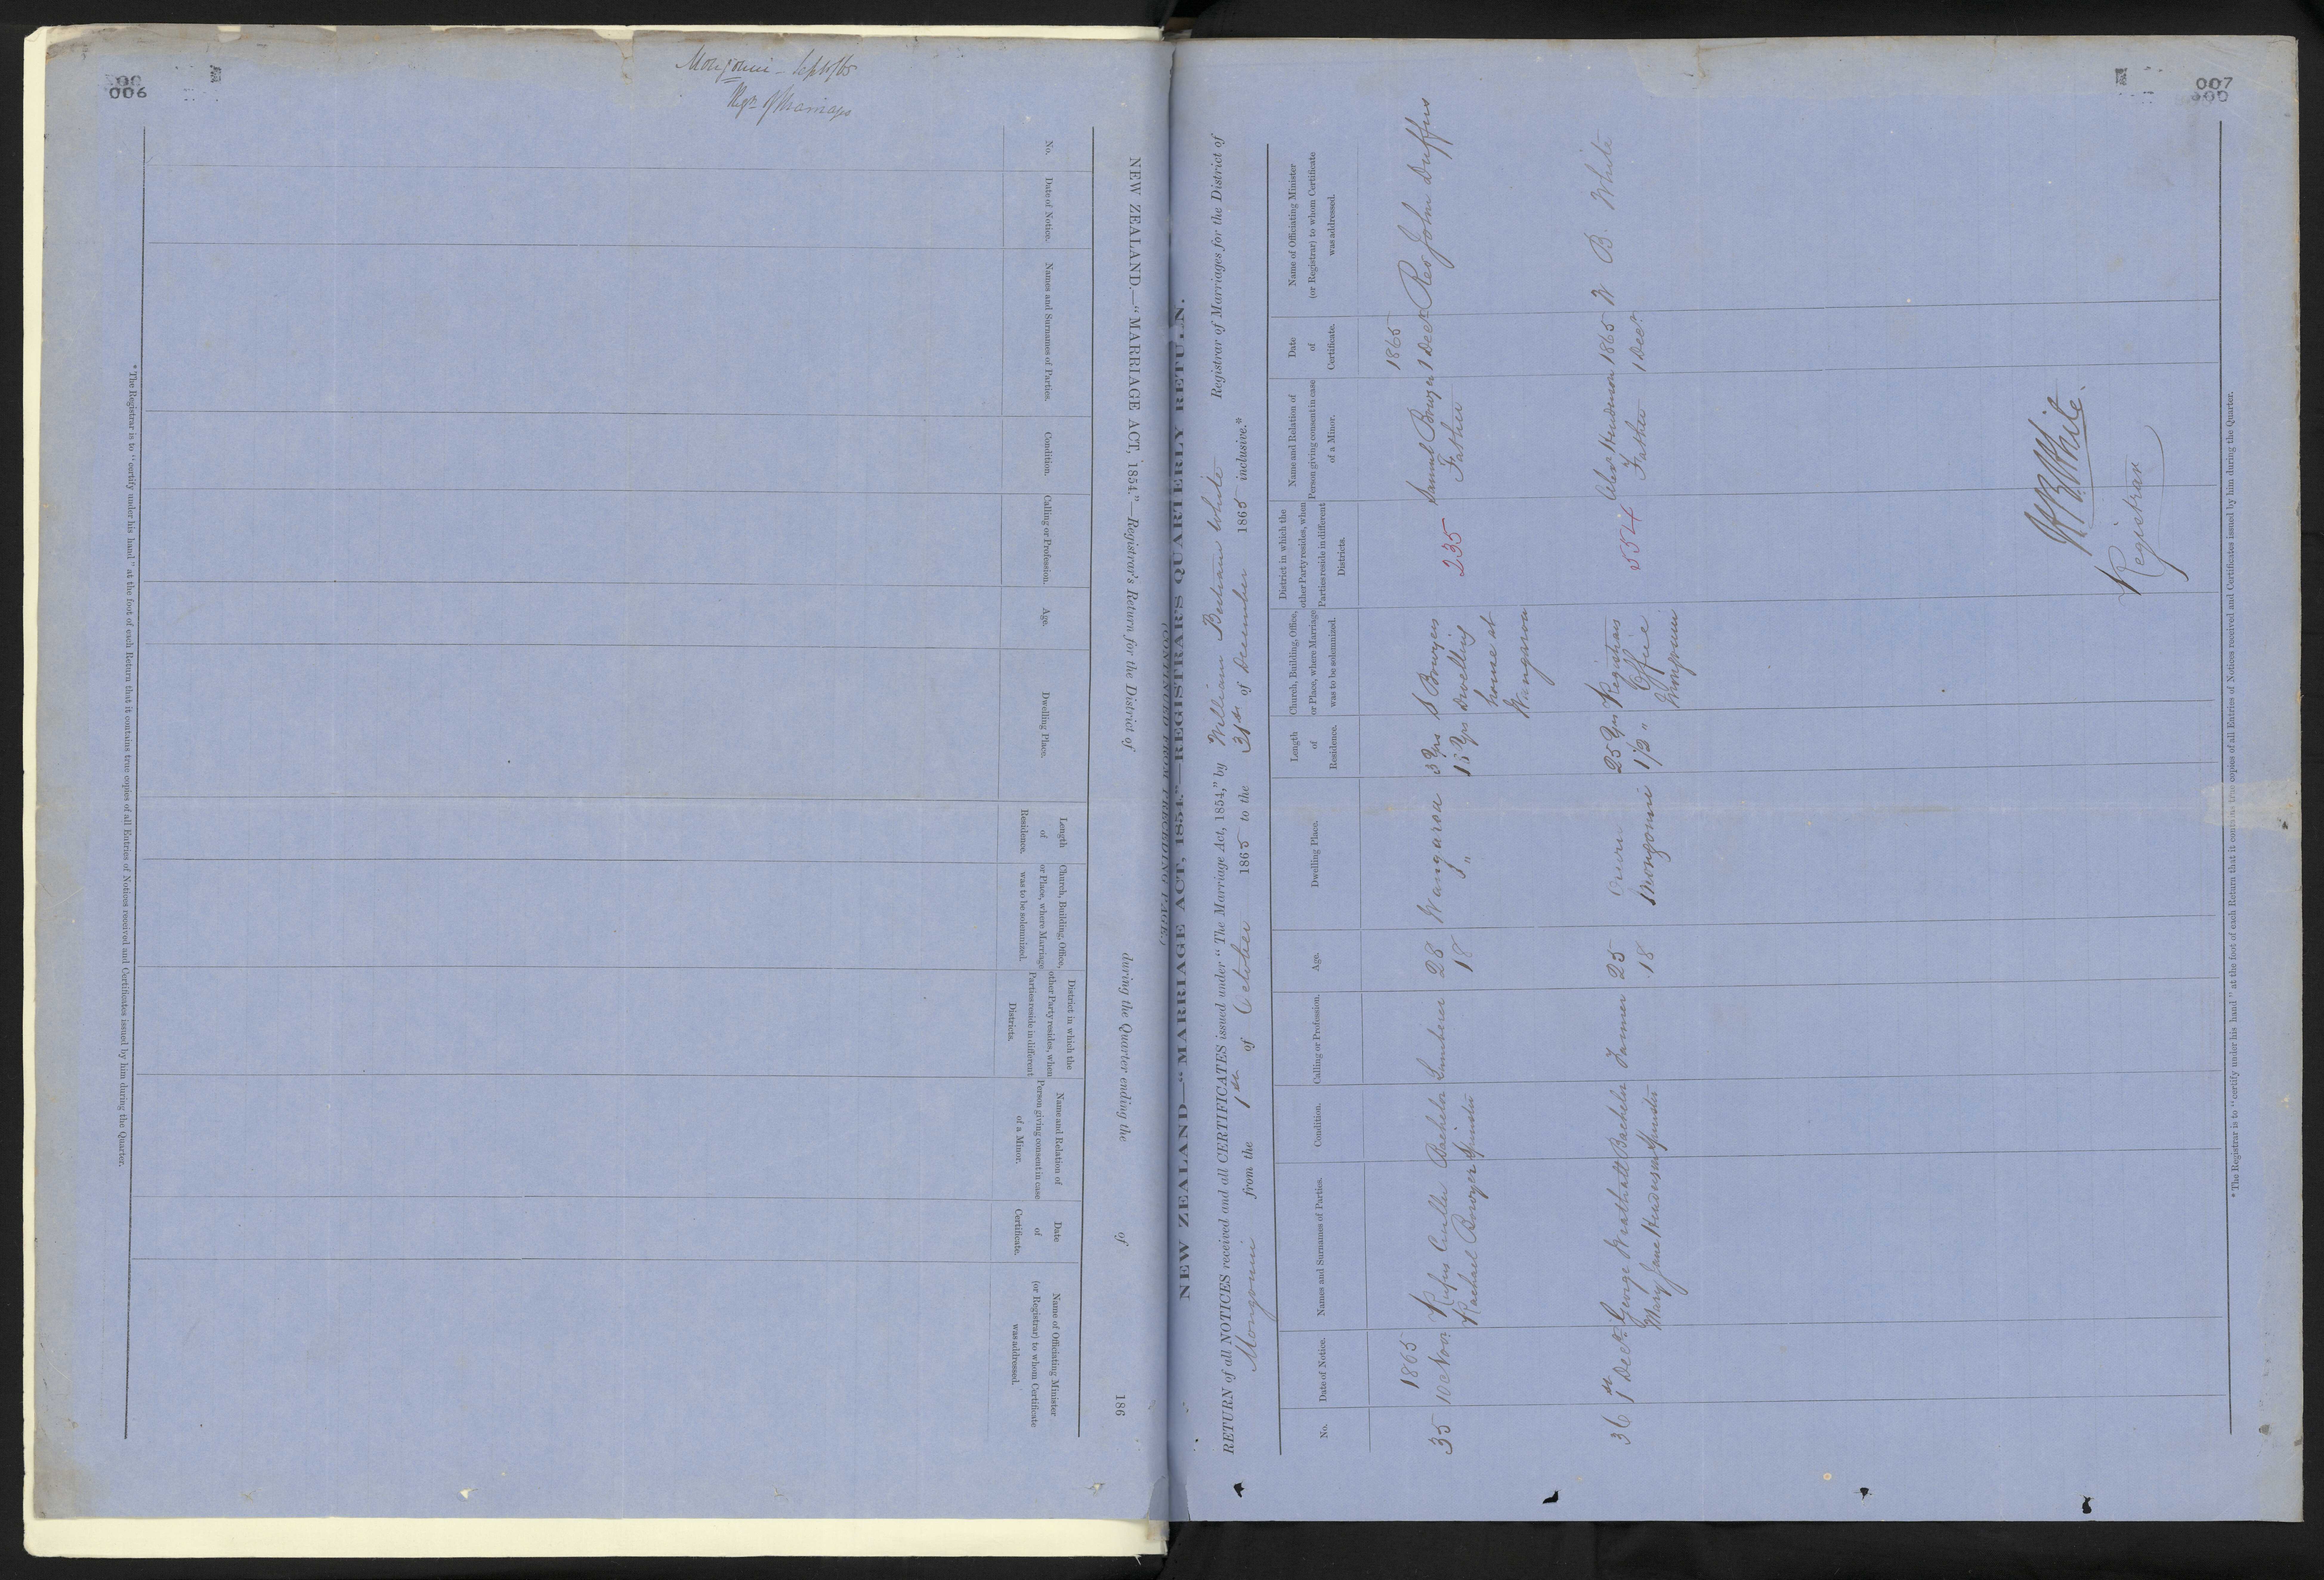 006
Mongonui - Sept/65
Regr. of Marriages
NEW ZEALAND.—"MARRIAGE ACT, 1854."—Registrar's Return for the District of during the Quarter ending the of 186
No.
Date of Notice.
Names and Surnames of Parties.
Condition.
Calling or Profession.
Age.
Dwelling Place.
Length
of
Residence.
Church, Building, Office,
or Place, where Marriage
was to be solemnized.
District in which the
other Party resides, when
Parties reside in different
Districts.
Name and Relation of
Person giving consent in case
of a Minor.
Date
of
Certificate.
Name of Officiating Minister
(or Registrar) to whom Certificate
was addressed.
* The Registrar is to "certify under his hand" at the foot of each Return that it contains true copies of all Entries of Notices received and Certificates issued by him during the Quarter.
007
(CONTINUED FROM PRECEDING PAGE.)
NEW ZEALAND—"MARRIAGE ACT, 1854."—REGISTRAR'S QUARTERLY RETURN.
RETURN of all NOTICES received and all CERTIFICATES issued under "The Marriage Act, 1854," by William Bertram White Registrar of Marriages for the District of
Mongonui from the 1st of October 1865 to the 31st of December 1865 inclusive.*
No.
Date of Notice.
Names and Surnames of Parties.
Condition.
Calling or Profession.
Age.
Dwelling Place.
Length
of
Residence.
Church, Building, Office,
or Place, where Marriage
was to be solemnized.
District in which the
other Party resides, when
Parties reside in different
Districts.
Name and Relation of
Person giving consent in case
of a Minor.
Date
of
Certificate.
Name of Officiating Minister
(or Registrar) to whom Certificate
was addressed.
1865 1865
35 10 Novr Rufus Cullen Bachelor Lumberer 28 Wangaroa 3 Yrs S Bowyers 235 Samuel Bowyer 1 Decr Rev John Duffus
Rachael Bowyer Spinster 18 " 15 Yrs Dwelling Father
house at
Wangaroa
36 1st Decr George Wrathall Bachelor Farmer 25 Oruru 25 Yrs Registrars 554 Alexr Henderson 1865 W B. White
Mary Jane Henderson Spinster 18 Mongonui 1 1/2 " Office Father 1 Decr
Mongonui
W B White
Registrar
* The Registrar is to "certify under his hand" at the foot of each Return that it contains true copies of all Entries of Notices received and Certificates issued by him during the Quarter.